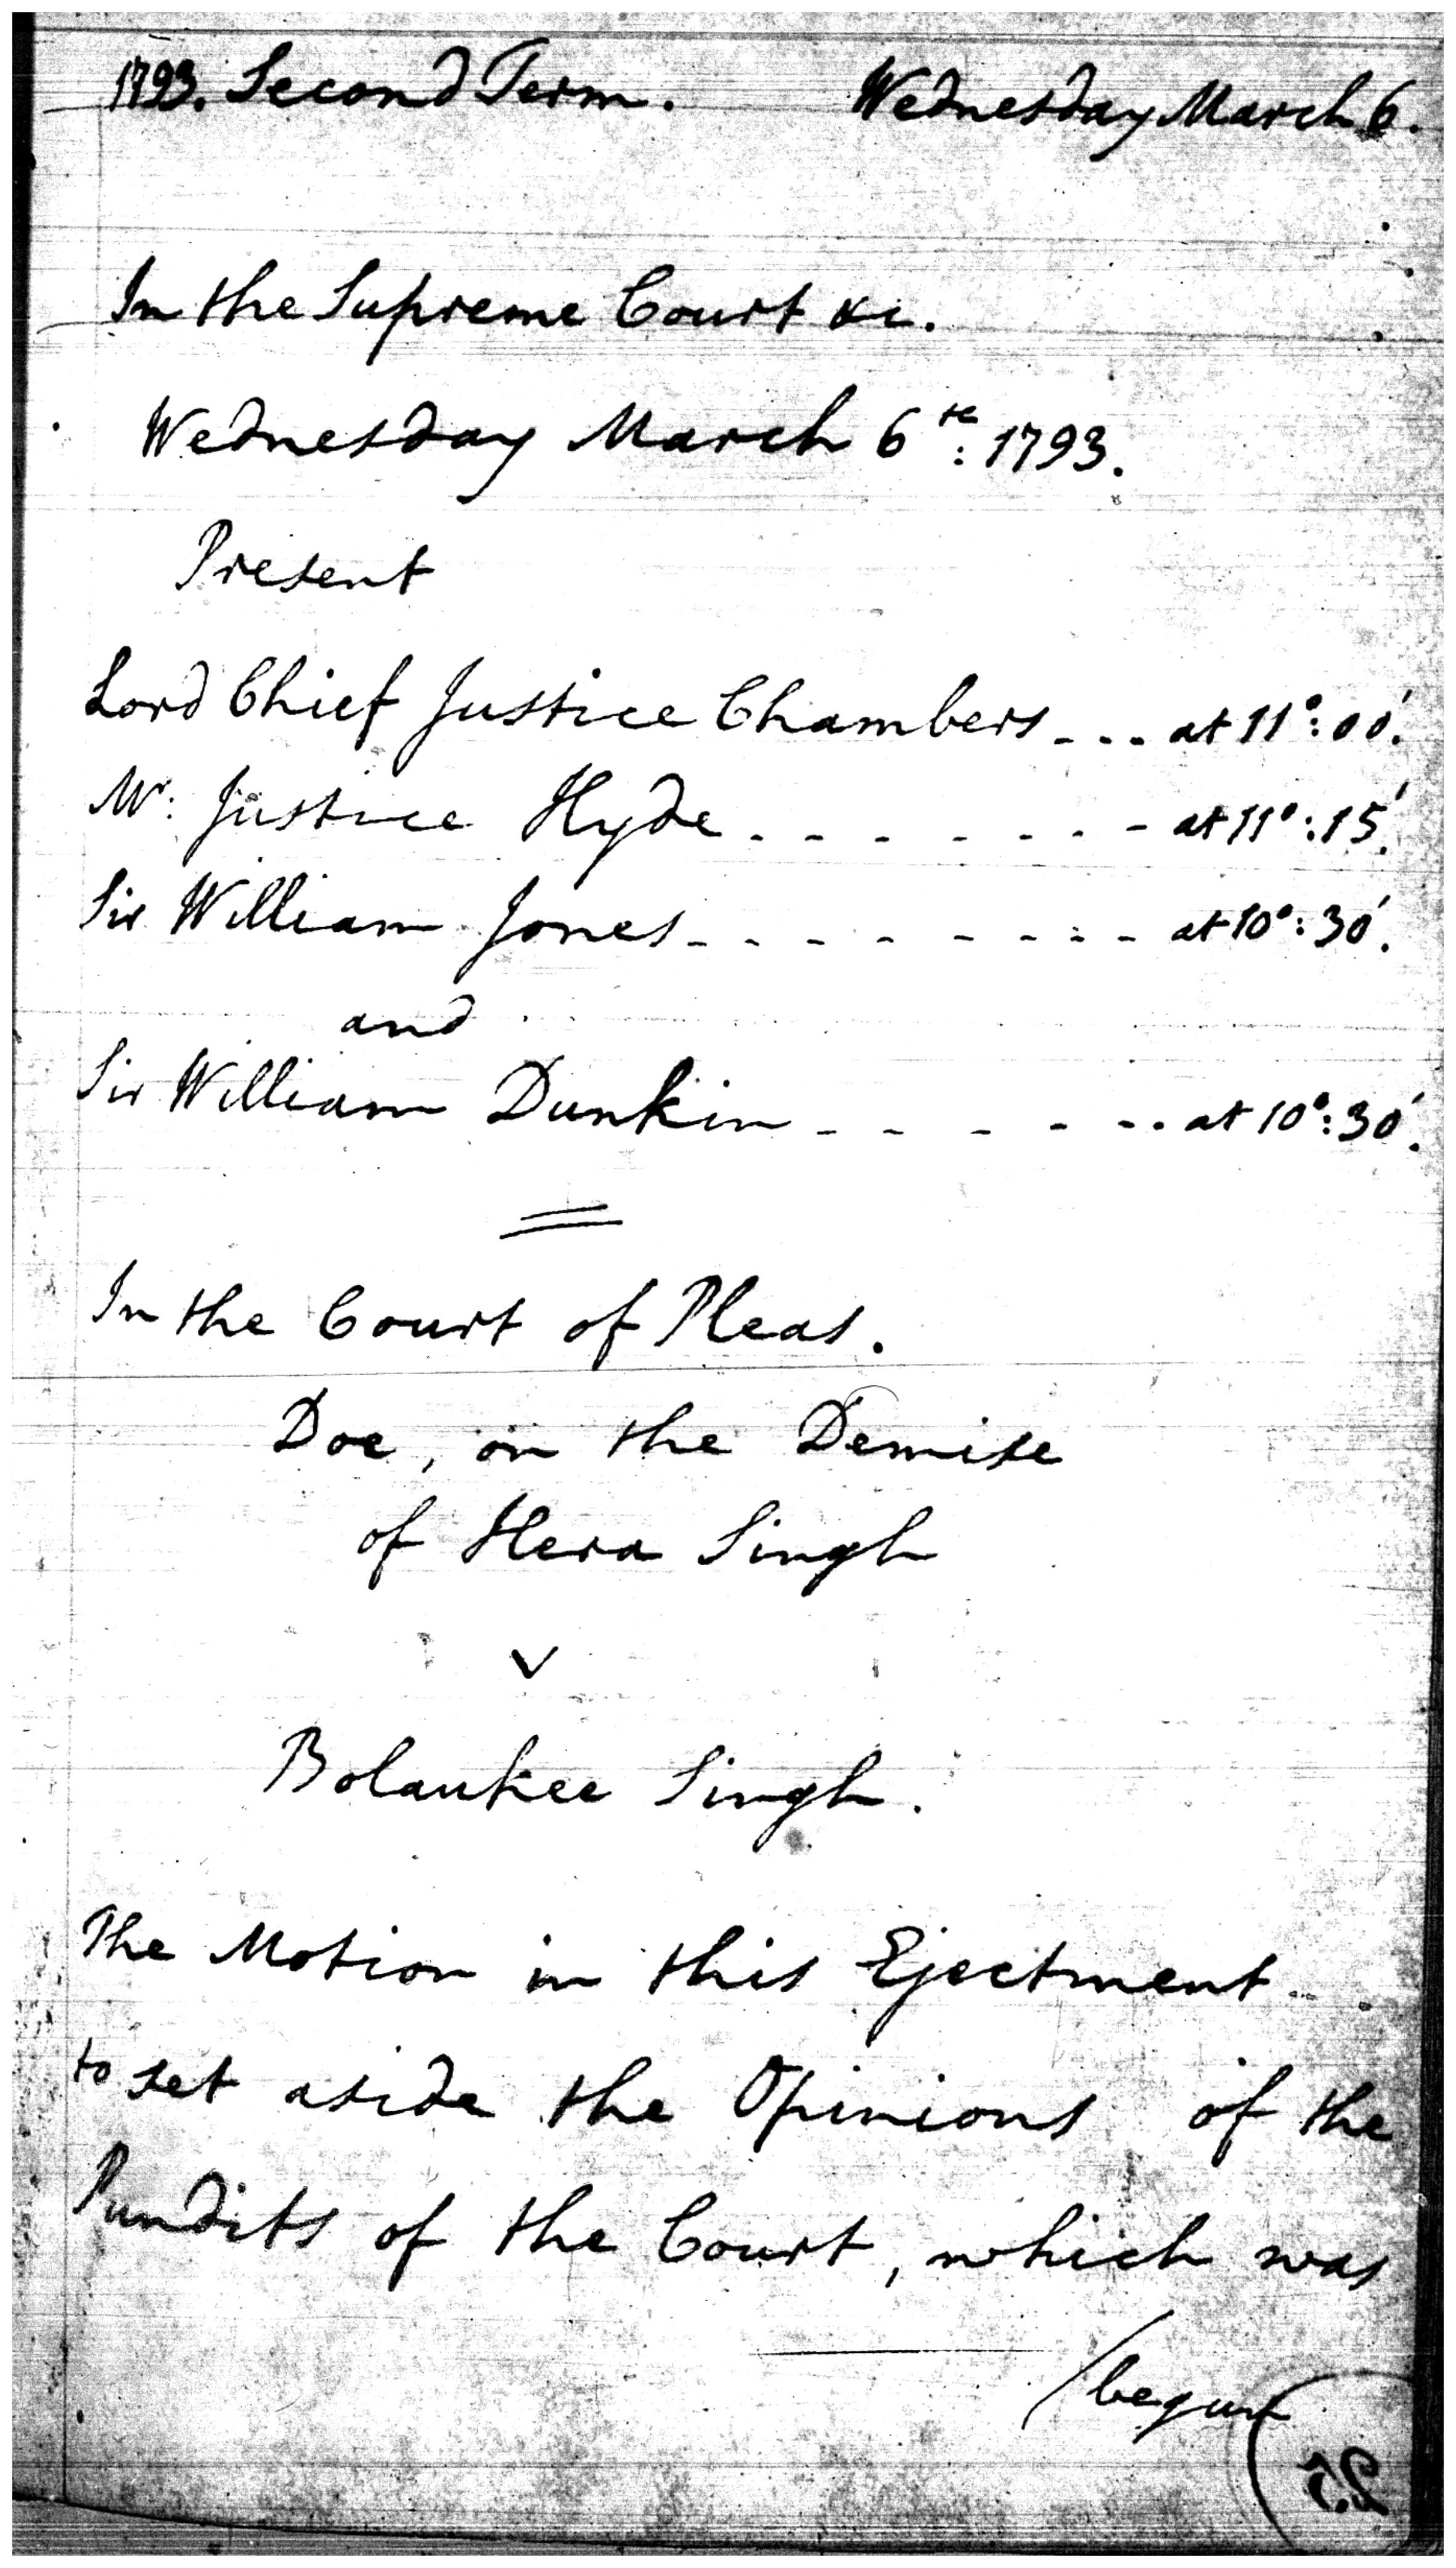 1793. Second Term. Wednesday March 6.
In the Supreme Court &c.
Wednesday March 6th: 1793.
Present
Lord Chief Justice Chambers - - - at 11°: 00'.
Mr: Justice Hyde - - - - - - - at 11°: 15'.
Sir William Jones - - - - - - - - at 10°: 30'.
and
Sir William Dunkin - - - - - - at 10°: 30'.
In the Court of Pleas.
Doe, on the Demise
of Hera Singh
v
Bolaukee Singh.
The Motion in this Ejectment
to set aside the Opinions of the
Pundits of the Court, which was
/begun